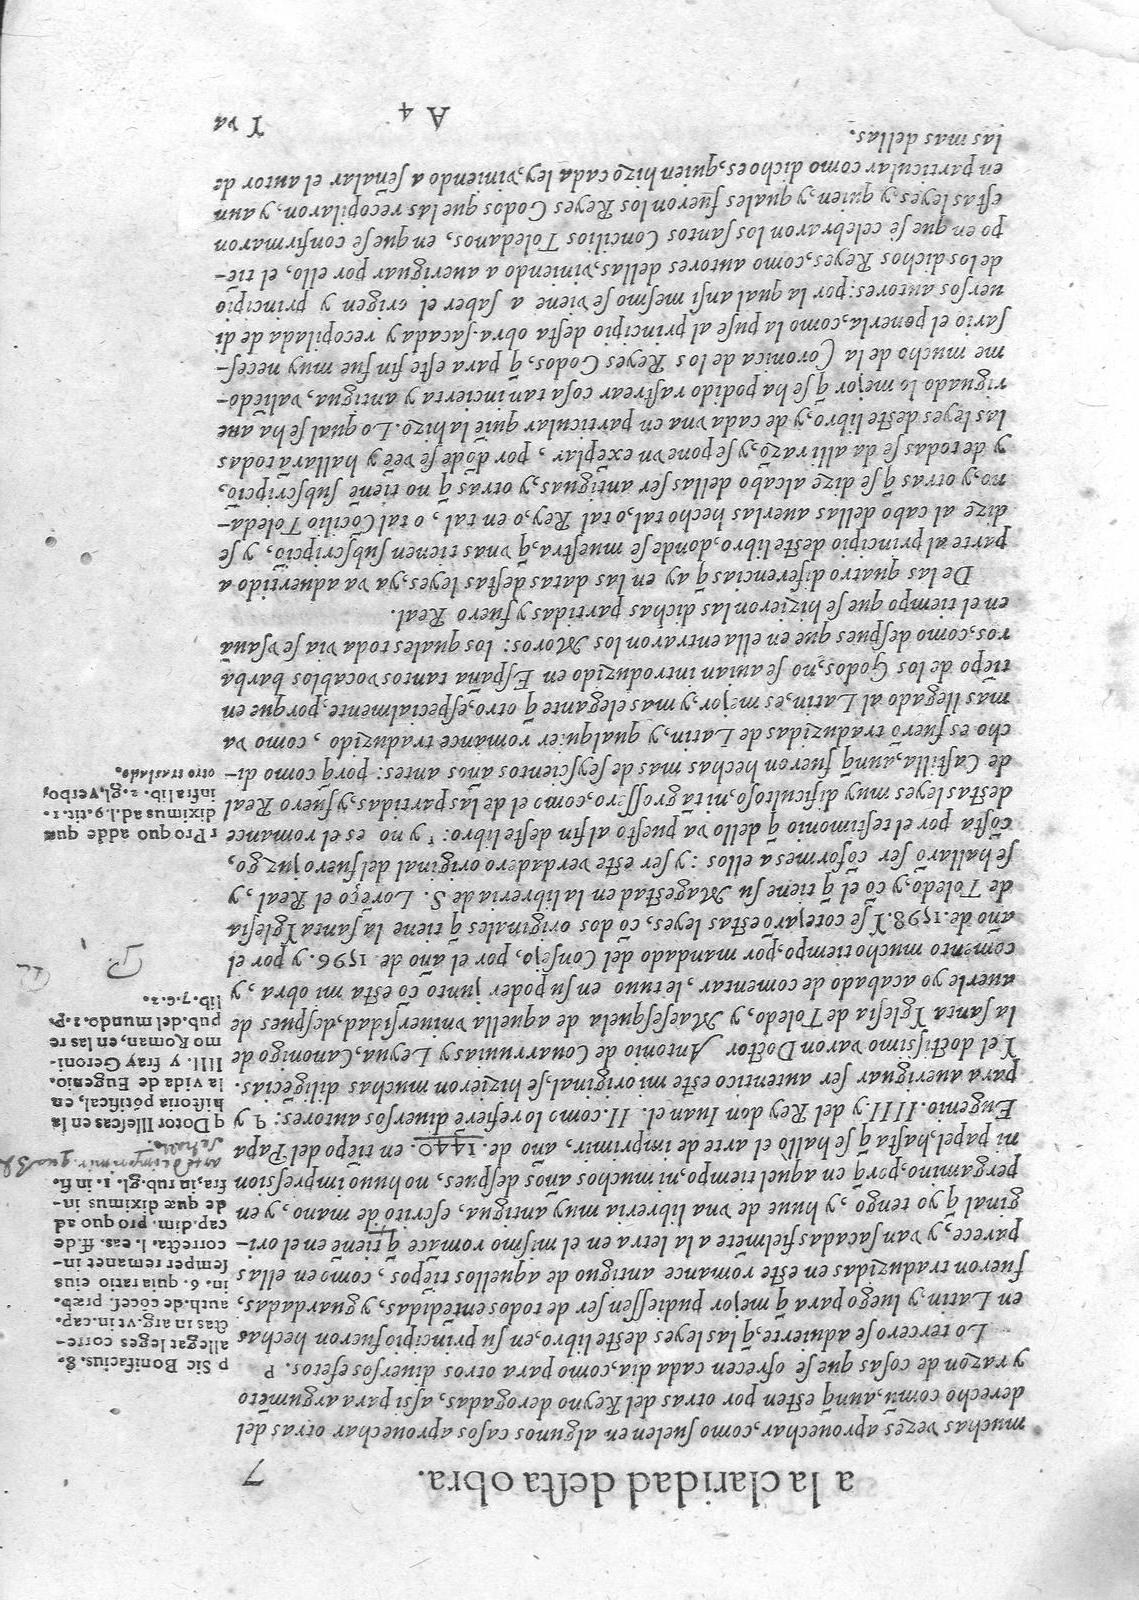 a la claridad desta obra.
7
muchas vezes aprouechar, como suelen en algunos casos aprouechar otras del
derecho comũ, aunq̃ esten por otras del Reyno derogadas, assi para argumẽto
y razon de cosas que se ofrecen cada dia, como para otros diuersos efetos. P
Lo tercero se aduierte, q̃ las leyes deste libro, en su principio fueron hechas
en Latin, y luego para q̃ mejor pudiessen ser de todos entẽdidas, y guardadas,
fueron traduzidas en este romance antiguo de aquellos tiẽpos, como en ellas
parece, y van sacadas fielmẽte a la letra en el mismo romãce q̃ tiene en el ori-
ginal q̃ yo tengo, y huue de vna libreria muy antigua, escrito de mano, y en
pergamino, porq̃ en aquel tiempo, ni muchos años despues, no huuo impression
ni papel, hasta q̃ se hallò el arte de imprimir, año de. 1440. en tiẽpo del Papa
Eugenio. IIII. y del Rey don Iuan el. II. como lo refiere diuersos autores: q y
para aueriguar ser autentico este mi original, se hizieron muchas diligẽcias.
Y el doctissimo varon Doctor Antonio de Couarruuias y Leyua, Canonigo de
la santa Iglesia de Toledo, y Maesescuela de aquella vniuersidad, despues de
auerle yo acabado de comentar, le tuuo en su poder junto cõ esta mi obra, y
comento mucho tiempo, por mandado del Consejo, por el año de 1596. y por el
año de. 1598. Y se cotejarõ estas leyes, cõ dos originales q̃ tiene la santa Yglesia
de Toledo, y cõ el q̃ tiene su Magestad en la libreria de S. Lorẽço el Real, y
se hallarõ ser cõformes a ellos: y ser este verdadero original del fuero juzgo,
cõsta por el testimonio q̃ dello va puesto al fin deste libro: r y no es el romance
destas leyes muy dificultoso, ni tã grossero, como el de las partidas, y fuero Real
de Castilla, aunq̃ fueron hechas mas de seyscientos años antes: porq̃ como di-
cho es fuerõ traduzidas de Latin, y qualquier romance traduzido, como va
mas llegado al Latin, es mejor, y mas elegante q̃ otro, especialmente, porque en
tiẽpo de los Godos, no se auian introduzido en España tantos vocablos barba
ros, como despues que en ella entraron los Moros: los quales toda via se vsauã
en el tiempo que se hizieron las dichas partidas y fuero Real.
De las quatro diferencias q̃ ay en las datas destas leyes, ya va aduertido a
parte al principio deste libro, donde se muestra, q̃ vnas tienen subscripciõ, y se
dize al cabo dellas auerlas hecho tal, o tal Rey, o en tal, o tal Cõcilio Toleda-
no, y otras q̃ se dize al cabo dellas ser antiguas, y otras q̃ no tienẽ subscripciõ,
y de todas se da alli razõ, y se pone vn exẽplar, por dõde se vee y hallarã todas
las leyes deste libro, y de cada vna en particular quiẽ la hizo. Lo qual se ha aue
riguado lo mejor q̃ se ha podido rastrear cosa tan incierta y antigua, valiẽdo-
me mucho de la Coronica de los Reyes Godos, q̃ para este fin fue muy neces-
sario el ponerla, como la puse al principio desta obra, sacada y recopilada de di
uersos autores: por la qual ansi mesmo se viene a saber el origen y principio
de los dichos Reyes, como autores dellas, viniendo a aueriguar por ello, el tie-
po en que se celebraron los santos Concilios Toledanos, en que se confirmaron
estas leyes, y quien, y quales fueron los Reyes Godos que las recopilaron, y aun
en particular como dicho es, quien hizo cada ley, viniendo a señalar el autor de
las mas dellas.
A 4
Y va
p Sic Bonifacius. 8.
allegat leges corre-
ctas in arg. vt in cap.
auth. de cõces. præb.
in. 6. quia ratio eius
semper remanet in-
correcta. l. cas. ff. de
cap. dim. pro quo ad
de quæ diximus in-
fra, in rub. gl. 1. in fi.
q Dotor Illescas en la
historia põtifical, en
la vida de Eugenio.
IIII. y fray Geroni-
mo Roman, en las re
pub. del mundo. 2. p.
lib. 7. c. 2.
r Pro quo adde quæ
diximus ad. l. 9. tit. 1.
infra lib. 2. gl. verbo,
otro traslado.